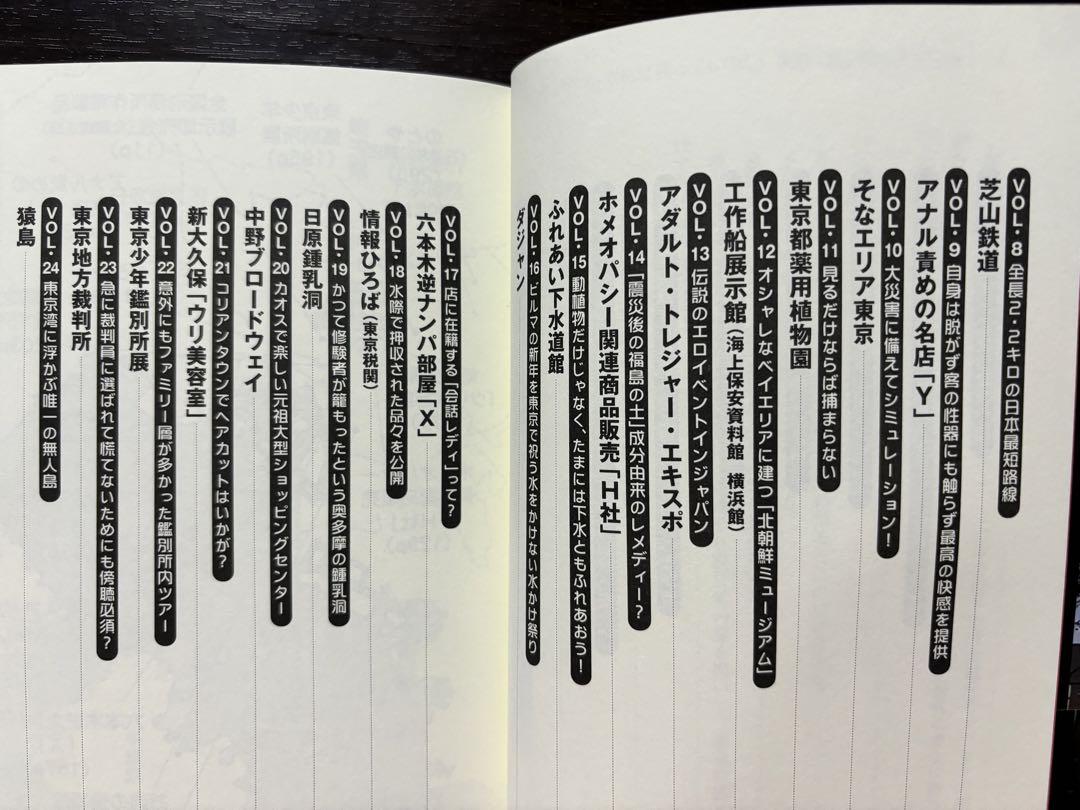 VOL・8 全長2・2キロの日本最短路線
芝山鉄道
VOL・9 自身は脱がず客の性器にも触らず最高の快感を提供
アナル責めの名店「Y」
VOL・10 大災害に備えてシミュレーション！
そなエリア東京
VOL・11 見るだけならば捕まらない
東京都薬用植物園
VOL・12 オシャレなベイエリアに建つ「北朝鮮ミュージアム」
工作船展示館（海上保安資料館 横浜館）
VOL・13 伝説のエロイベントインジャパン
アダルト・トレジャー・エキスポ
VOL・14 「震災後の福島の土」成分由来のレメディー？
ホメオパシー関連商品販売「H社」
VOL・15 動植物だけじゃなく、たまには下水ともふれあおう！
ふれあい下水道館
VOL・16 ビルマの新年を東京で祝う水をかけない水かけ祭り
ダジャン
VOL・17 店に在籍する「会話レディ」って？
六本木逆ナンパ部屋「X」
VOL・18 水際で押収された品々を公開
情報ひろば（東京税関）
VOL・19 かつて修験者が籠もったという奥多摩の鍾乳洞
日原鍾乳洞
VOL・20 カオスで楽しい元祖大型ショッピングセンター
中野ブロードウェイ
VOL・21 コリアンタウンでヘアカットはいかが？
新大久保「ウリ美容室」
VOL・22 意外にもファミリー層が多かった鑑別所内ツアー
東京少年鑑別所展
VOL・23 急に裁判員に選ばれて慌てないためにも傍聴必須？
東京地方裁判所
VOL・24 東京湾に浮かぶ唯一の無人島
猿島